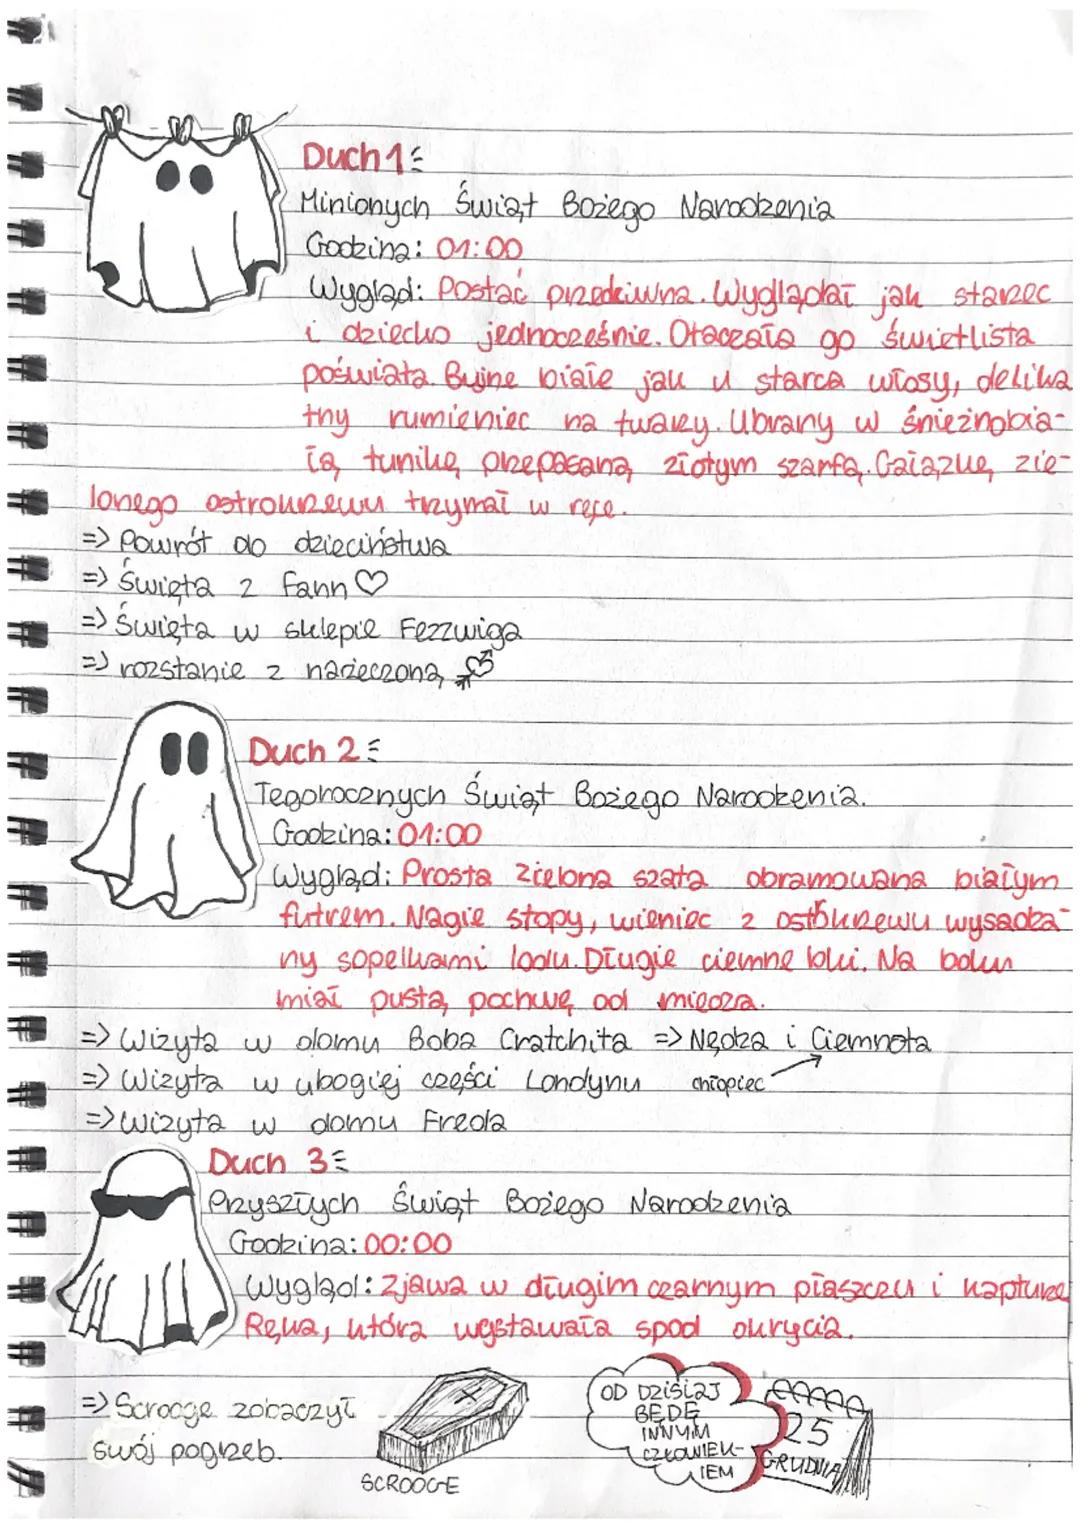 Duch 1:
Minionych Świąt Bożego Narodzenia
Godzina: 01:00
Wygląd: Postać przedziwna. Wyglądał jak starzec
i dziecko jednocześnie. Otaczała go świetlista
poświata. Bujne białe jak u starca włosy, delika
tny rumieniec na twarzy. Ubrany w śnieżnobia-
łą tunikę przepasaną złotym szarfą. Gałązkę zie-
lonego ostrokrzewu trzymał w ręce.
=> Powrót do dzieciństwa
=> Święta z Fann ♡
=> Święta w sklepie Fezzwiga
=> rozstanie z narzeczoną
Duch 2:
Tegorocznych Świąt Bożego Narodzenia.
Godzina: 01:00
Wygląd: Prosta zielona szata obramowana białym
futrem. Nagie stopy, wieniec z ostokrzewu wysadza-
ny sopelkami lodu. Długie ciemne loki. Na boku
miał pustą pochwę od miecza.
=> Wizyta w domu Boba Cratchita => Nędza i Ciemnota
=> Wizyta w ubogiej części Londynu chłopiec
=> Wizyta w domu Freda
Duch 3:
Przyszłych Świąt Bożego Narodzenia
Godzina: 00:00
Wygląd: Zjawa w długim czarnym płaszczu i kapturze
Ręka, która wystawała spod okrycia.
=> Scrooge zobaczył
swój pogrzeb.
SCROOGE
OD DZISIAJ
BĘDĘ
INNYM
CZŁOWIEK-
IEM
25
GRUDNIA